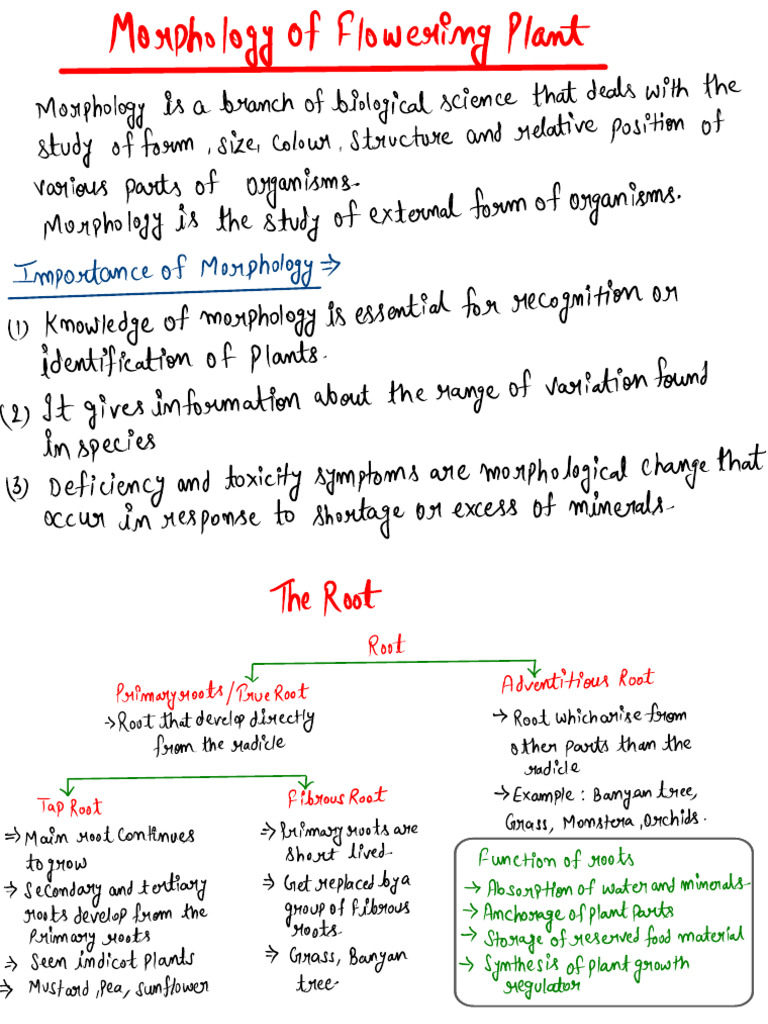 Morphology of Flowering Plant
Morphology is a branch of biological science that deals with the
study of form, size, colour, structure and relative position of
various parts of organisms.
Morphology is the study of external form of organisms.
Importance of Morphology ⇒
(1) Knowledge of morphology is essential for recognition or
identification of plants.
(2) It gives information about the range of variation found
in species
(3) Deficiency and toxicity symptoms are morphological change that
occur in response to shortage or excess of minerals.
The Root
Root
Primary roots/True Root
→ Root that develop directly
from the radicle
Tap Root
⇒ Main root continues
to grow
⇒ Secondary and tertiary
roots develop from the
Primary roots
⇒ Seen in dicot plants
⇒ Mustard, Pea, sunflower
Fibrous Root
⇒ Primary roots are
short lived.
⇒ Get replaced by a
group of fibrous
roots.
⇒ Grass, Banyan
tree.
Adventitious Root
→ Root which arise from
other parts than the
radicle
→ Example : Banyan tree,
Grass, Monstera, Orchids.
Function of roots
→ Absorption of water and minerals
→ Anchorage of plant parts
→ Storage of reserved food material
→ Synthesis of plant growth
regulator